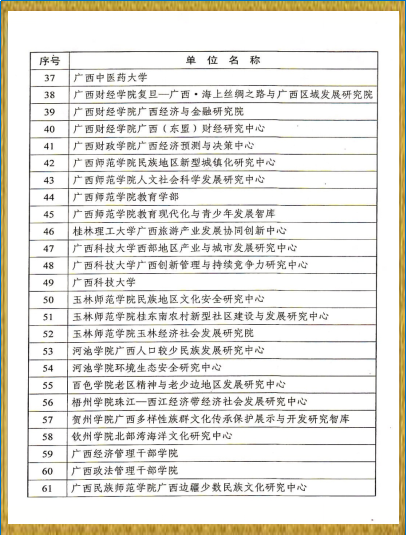 序号 单位名称
37 广西中医药大学
38 广西财经学院复旦—广西·海上丝绸之路与广西区域发展研究院
39 广西财经学院广西经济与金融研究院
40 广西财经学院广西（东盟）财经研究中心
41 广西财政学院广西经济预测与决策中心
42 广西师范学院民族地区新型城镇化研究中心
43 广西师范学院人文社会科学发展研究中心
44 广西师范学院教育学部
45 广西师范学院教育现代化与青少年发展智库
46 桂林理工大学广西旅游产业发展协同创新中心
47 广西科技大学西部地区产业与城市发展研究中心
48 广西科技大学广西创新管理与持续竞争力研究中心
49 广西科技大学
50 玉林师范学院民族地区文化安全研究中心
51 玉林师范学院桂东南农村新型社区建设与发展研究中心
52 玉林师范学院玉林经济社会发展研究院
53 河池学院广西人口较少民族发展研究中心
54 河池学院环境生态安全研究中心
55 百色学院老区精神与老少边地区发展研究中心
56 梧州学院珠江—西江经济带经济社会发展研究中心
57 贺州学院广西多样性族群文化传承保护展示与开发研究智库
58 钦州学院北部湾海洋文化研究中心
59 广西经济管理干部学院
60 广西政法管理干部学院
61 广西民族师范学院广西边疆少数民族文化研究中心